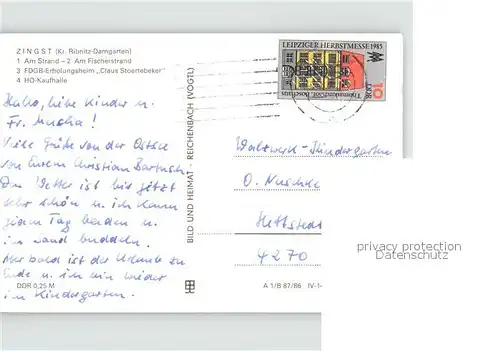 ZINGST (Kr. Ribnitz-Damgarten)
1 Am Strand – 2 Am Fischerstrand
3 FDGB-Erholungsheim „Claus Stoertebeker"
4 HO-Kaufhalle
Hallo, liebe Kinder u.
Fr. Muscha!
Viele Grüße von der Ostsee
von Eurem Christian Bartusch.
Das Wetter ist bis jetzt
sehr schön u. ich kann
jeden Tag baden u.
im Sand buddeln.
Nur bald ist der Urlaub zu
Ende u. ich bin wieder
im Kindergarten.
DDR 0,25 M
BILD UND HEIMAT · REICHENBACH (VOGTL)
LEIPZIGER HERBSTMESSE 1985
DDR
10
Walzwerk-Kindergarten
O. Nuschke
Hettstedt
4270
A 1/B 87/86 IV-1-
privacy protection
Datenschutz